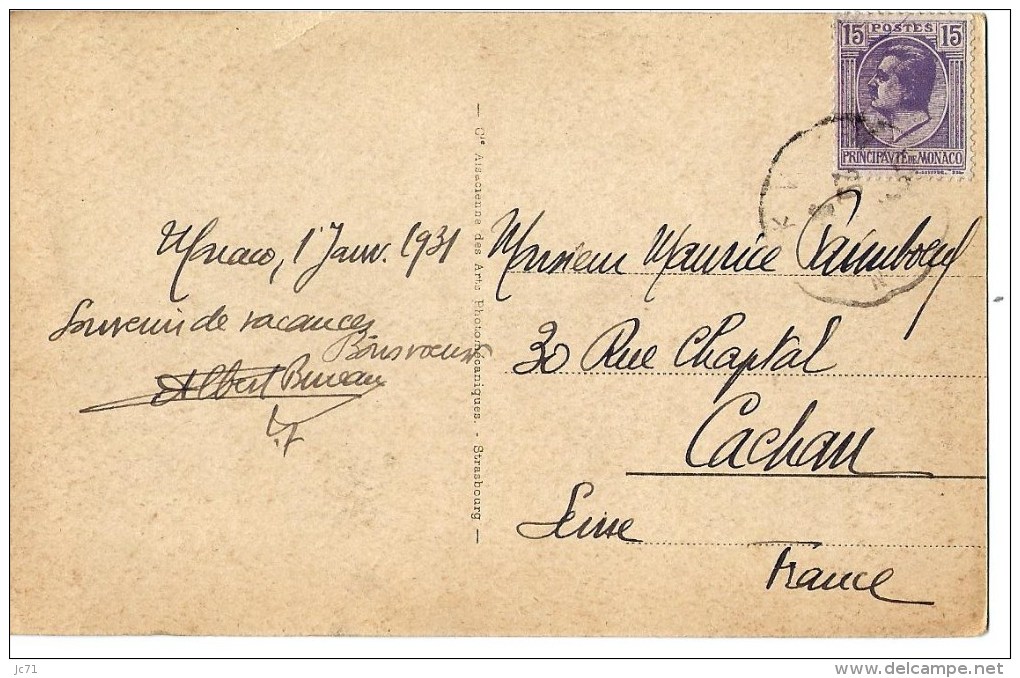 15 POSTES 15
PRINCIPAVTÉ DE MONACO
Monaco, 1 Janv. 1931
Souvenir de vacances
Bons voeux
Albert Bureau
— Cie Alsacienne des Arts Photomécaniques. - Strasbourg —
Monsieur Maurice Paimboeuf
30 Rue Chaptal
Cachan
Seine
France
jc71
www.delcampe.net